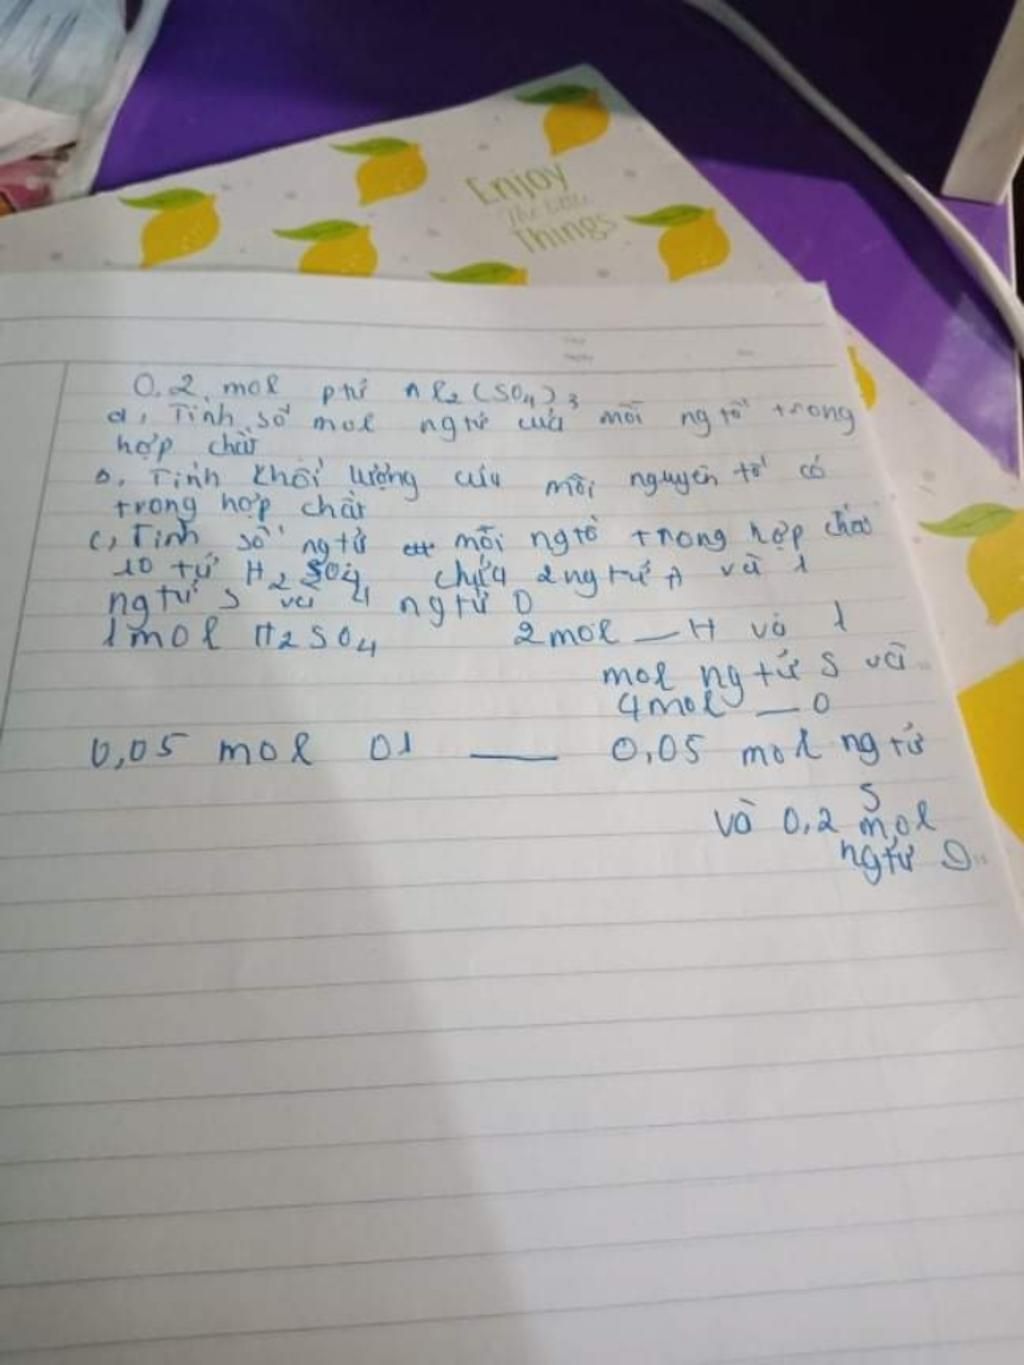 Enjoy
The Little
Things
0,2 mol ptử Al2(SO4)3
a, Tính số mol ngtử của mỗi ngtố trong
hợp chất
b, Tính khối lượng của mỗi nguyên tố có
trong hợp chất
c, Tính số ngtử mỗi ngtố trong hợp chất
10 tử H2SO4 chứa 2ngtử H và 1
ngtử S và 4 ngtử O
1mol H2SO4 2mol — H và 1
mol ngtử S và
4mol — O
0,05 mol 01 — 0,05 mol ngtử
S
và 0,2 mol
ngtử O